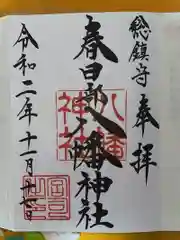 総鎮守 奉拝
春日部八幡神社
八幡神社
令和二年十一月廿七日